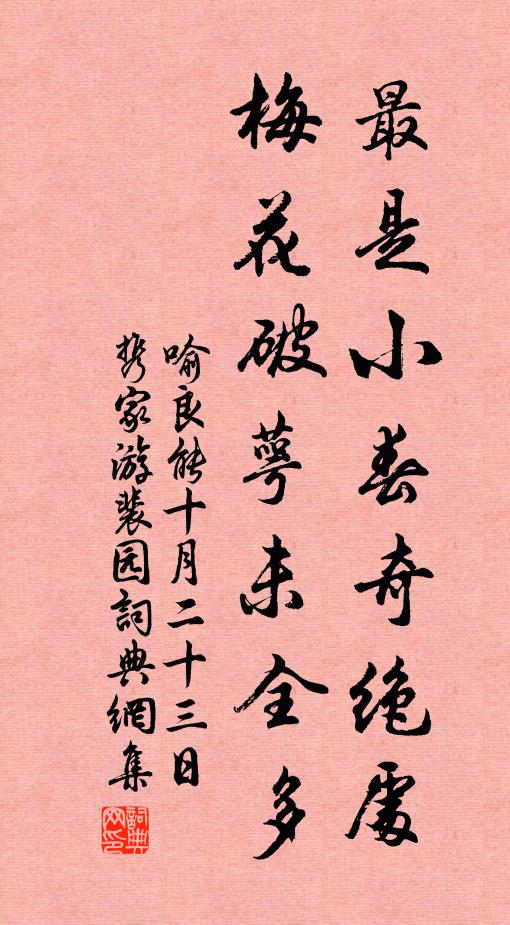 最是小春奇绝處
梅花破萼未全多
喻良能十月二十三日
携家游裴园詞典網集
詞典网印